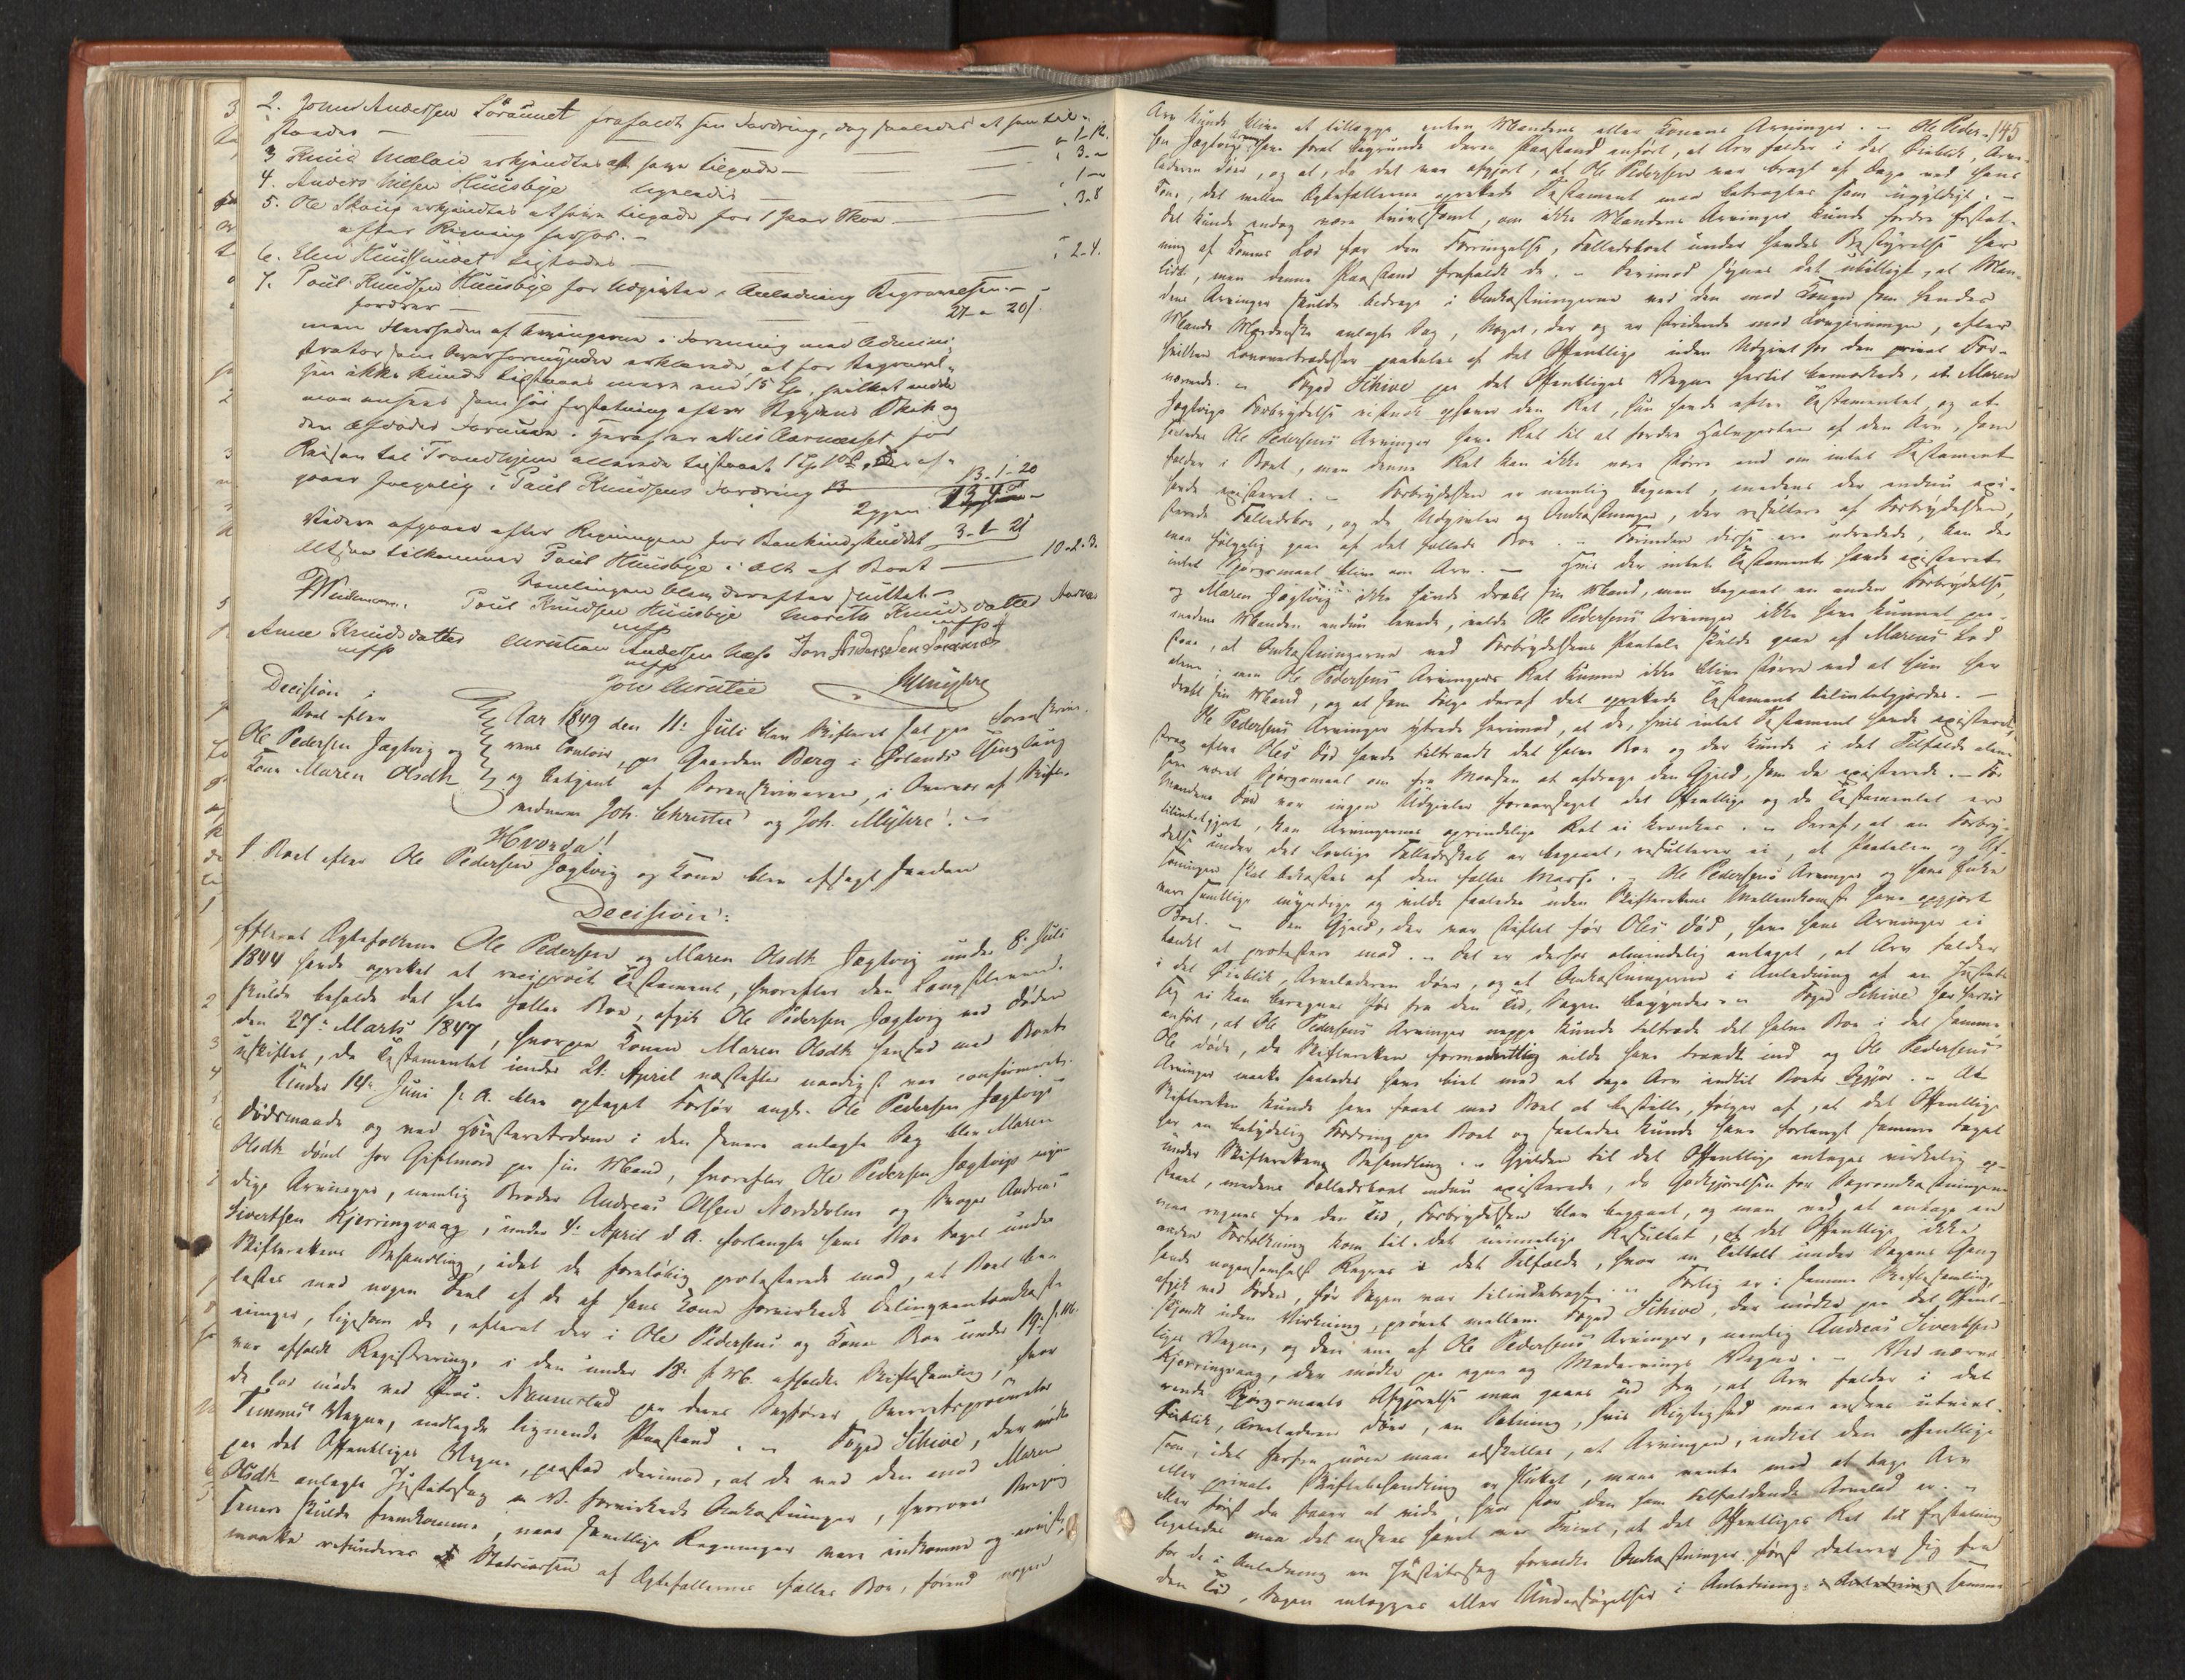 2. John Anderssen Soraunet frafaldt sin Fordring, dog saaledes at han til-
staaes — " 1-12.
3 Knud Mælan erkjendtes at have tilgode — " 3 - "
4. Anders Nilsen Huusbye ligeledes — " 1 - "
5. Ole Skoug erkjendtes at have tilgode for 1 par Skoe — " 3-8
efter Regning herfor. —
6. Elen Huus tilstodes — " 2-4.
7. Poul Knudsen Huusbye for Udgivter i Anledning Begravelsen —
fordrer — 27 " 20 ſ.
men Fleerheden af Arvingerne i Forening med Admini-
strator som Overformynder erklærede, at for Begravel-
sen ikke kunde tilstaaes mere end 15 Sp, hvilket endda
maa ansees som høi Erstatning efter Bygdens Skik og
den afdødes Formue. Heraf er Nils Aarnæsset for
Reisen til Trondhjem allerede tilstaaet 1 Sp der af-
gaaer følgelig i Poul Knudsens Fordring 13 - 1 - 20
Videre afgaaer efter Regningen for 3-1-21
Altsaa tilkommer Poul Huusbye i Alt af Boet — 10-2-3.
Samlingen blev derefter sluttet. —
Widemann. Poul Knudsen Huusbye Marethe Knudsdatter Aarnæs
mfp mfp
Anne Knudsdatter Christian Andersen Næss Jon Andersen Soraunet
mfp mfp
Joh Christie JMyhre
Decision i
Boet efter
Ole Pedersen Jægtvig og
Kone Maren Olsdtr
Aar 1849 den 11te Juli blev Skifteret sat paa Sorenskrive-
rens Contoir, paa Gaarden Berg i Ørlands Thinglaug
og betjent af Sorenskriveren, i Overvær af Skifte-
vidnerne Joh. Christie og Joh. Myhre. —
Hvorda!
I Boet efter Ole Pedersen Jægtvig og Kone blev afsagt saadan
Decision:
Efterat Ægtefolkene Ole Pedersen og Maren Olsdtr Jægtvig under 8de Juli
1844 havde oprettet et reciproct Testament, hvorefter den Længstlevende
skulde beholde det hele fælles Boe, afgik Ole Pedersen Jægtvig ved Døden
den 27de Marts 1847, hvorpaa Konen Maren Olsdtr hensad med Boet
uskiftet, da Testamentet under 21de April næstefter naadigst var confirmeret.
Under 14de Juni s. A. blev optaget Forhør angd. Ole Pedersen Jægtvigs
Dødsmaade og ved Høiesteretsdom i den senere anlagte Sag blev Maren
Olsdtr dømt for Giftmord paa sin Mand, hvorefter Ole Pedersen Jægtvigs myn-
dige Arvinger, nemlig Broder Andreas Olsen Norddolm og Svoger Andreas
Sivertsen Kjerringvaag, under 4de April d. A. forlangte hans Boe taget under
Skifterettens Behandling, idet de foreløbig protesterede mod, at Boet be-
lastes med nogen Deel af de af hans Kone forvirkede Delinqventomkost-
ninger, ligesom de, efterat der i Ole Pedersens og Kones Boe under 19de s. M.
var afholdt Registrering, i den under 18de f. M. afholdte Skiftesamling, hvor
de lod møde ved Proc. Nannestad paa deres Sagfører Overretsprocurator
Vegne, nedlagde lignende Paastand. — Foged Schive, der mødte
paa det Offentliges Vegne, paastod derimod, at de ved den mod Maren
Olsdtr anlagte Justitssag m. V. forvirkede Omkostninger, hvorover Beregning
senere skulde fremkomme, naar samtlige Regninger vare indkomne og anviste,
maatte refunderes Statscassen af Ægtefællernes fælles Boe, førend nogen
145
Arv kunde blive at tillægge enten Mandens eller Konens Arvinger. — Ole Peder-
sen Jægtvigs Arvinger have forat begrunde deres Paastand anført, at Arv falder i det Øieblik, Arve-
laderen døer, og at, da det var afgjort, at Ole Pedersen var bragt af Dage ved hans
Kone, det mellem Ægtefællerne oprettede Testament maa betragtes som ugyldigt; —
det kunde endog være tvivlsomt, om ikke Mandens Arvinger kunde fordre Erstat-
ning af Konens Lod for den Forringelse, Fælledsboet under hendes Bestyrelse har
lidt, men denne Paastand frafaldt de. — Derimod synes det ubilligt, at Man-
dens Arvinger skulde bidrage i Omkostningerne ved den mod Konen som hendes
Mands Morderske anlagte Sag, Noget, der og er stridende mod Lovgivningen, efter
hvilken Lovovertrædelser paatales af det Offentlige uden Udgivt for den privat For-
nærmede. — Foged Schive paa det Offentliges Vegne hertil bemærkede, at Maren
Jægtvigs Forbrydelse vistnok ophæver den Ret, hun havde efter Testamentet, og at
saaledes Ole Pedersens Arvinger have Ret til at fordre Halvparten af den Arv, som
falder i Boet, men denne Ret kan ikke være større end om intet Testament
havde existeret. — Forbrydelsen er nemlig begaaet, medens der endnu exi-
sterede Fælledsboe, og de Udgivter og Omkostninger, der resultere af Forbrydelsen,
maa følgelig gaae af det fælleds Boe. — Forinden disse ere udredede, kan der
intet Spørgsmaal blive om Arv. — Hvis der intet Testament havde existeret
og Maren Jægtvig ikke havde dræbt sin Mand, men begaaet en anden Forbrydelse,
medens Manden endnu levede, vilde Ole Pedersens Arvinger ikke have kunnet paa-
staae, at Omkostningerne ved Forbrydelsens Paatale skulde gaae af Marens Lod
alene; men Ole Pedersens Arvingers Ret kunne ikke blive større ved at hun har
dræbt sin Mand, og at som Følge deraf det oprettede Testament tilintetgjordes. —
Ole Pedersens Arvinger ytrede herimod, at de, hvis intet Testament havde existeret,
strax efter Oles Død havde tiltraadt det halve Boe og der kunde i det Tilfælde alene
have været Spørgsmaal om fra Massen at afdrage den Gjæld, som da existerede. — Før
Mandens Død var ingen Udgivter foraarsaget det Offentlige og da Testamentet er
tilintetgjort, kan Arvingernes oprindelige Ret ei krænkes. — Deraf, at en Forbry-
delse under det lovlige Fælledsskab er begaaet, resulterer ei, at Paatalen og Af-
soningen skal bekostes af den fælles Masse. — Ole Pedersens Arvinger og hans Enke
vare samtlige myndige og vilde saaledes uden Skifterettens Mellemkomst have opgjort
Boet. — Den Gjæld, der var stiftet før Oles Død, have hans Arvinger ei
tænkt at protestere mod. — Det er derhos almindelig antaget, at Arv falder
i det Øieblik, Arveladeren døer, og at Omkostningerne i Anledning af en Justits-
sag ei kan beregnes før fra den Tid, Sagen begynder. — Foged Schive har hertil
anført, at Ole Pedersens Arvinger neppe kunde tiltræde det halve Boe i det samme
Ole døde, da Skifteretten formodentlig vilde have traadt ind og Ole Pedersens
Arvinger maatte saaledes have biet med at tage Arv indtil Boets Opgjør. — At
Skifteretten kunde have faaet med Boet at bestille, følger af, at det Offentlige
har en betydelig Fordring paa Boet og saaledes kunde have forlangt samme taget
under Skifterettens Behandling. — Gjælden til det Offentlige antages virkelig op-
staaet, medens Fælledsboet endnu existerede, da Godtgjørelsen for Sagsomkostningerne
maa regnes fra den Tid, Forbrydelsen blev begaaet, og man ved at antage en
anden Fortolkning kom til det urimelige Resultat, at det Offentlige ikke
havde nogensomhelst Regres i det Tilfælde, hvor en Tiltalt under Sagens Gang
afgik ved Døden, før Sagen var tilendebragt. — Forlig er i samme Skiftesamling,
skjøndt uden Virkning, prøvet mellem Foged Schive, der mødte paa det Offent-
liges Vegne, og den ene af Ole Pedersens Arvinger, nemlig Andreas Sivertsen
Kjerringvaag, der mødte paa egne og Medarvings Vegne. — Ved nærvæ-
rende Spørgsmaals Afgjørelse maa gaaes ud fra, at Arv falder i det
Øieblik, Arveladeren døer, en Sætning, hvis Rigtighed maa ansees utvivl-
som, idet herfra nøie maa adskilles, at Arvingen, indtil den offentlige
eller private Skiftebehandling er sluttet, maa vente med at tage Arv
eller først da faaer at vide, hvor stor den ham tilfaldende Arvelod er. —
Ligeledes maa det ansees hævet over Tvivl, at det Offentliges Ret til Erstatning
for de i Anledning en Justitssag forvoldte Omkostninger først daterer sig fra
den Tid, Sagen anlægges eller Undersøgelser i Anledning samme